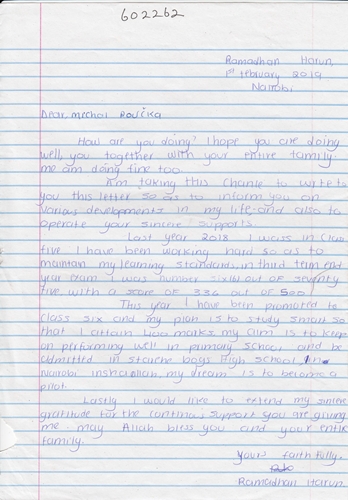 602262
Ramadhan Harun,
1st february 2019
Nairobi
Dear, mechal
How are you doing? I hope you are doing
well, you together with your entire family
me am doing fine too.
Am taking this chance to write to
you this letter so as to inform you on
various developments in my life and also to
your sincere supports.
Last year 2018 I was in class
five I have been working hard so as to
maintain my learning standards, in third term end
year exam I was number out of seventy
five, with a score of 336 out of 500!
This year I have been promoted to
class six and my plan is to study smart so
that I attain 400 marks, my aim is to keep
on performing well in primary school and be
admitted in boys High school in
Nairobi inshallah, my dream is to become a
pilot.
Lastly I would like to extend my sincere
gratitude for the continous support you are giving
me. may Allah bless you and your entire
family.
Yours faithfully,
Ramadhan Harun.